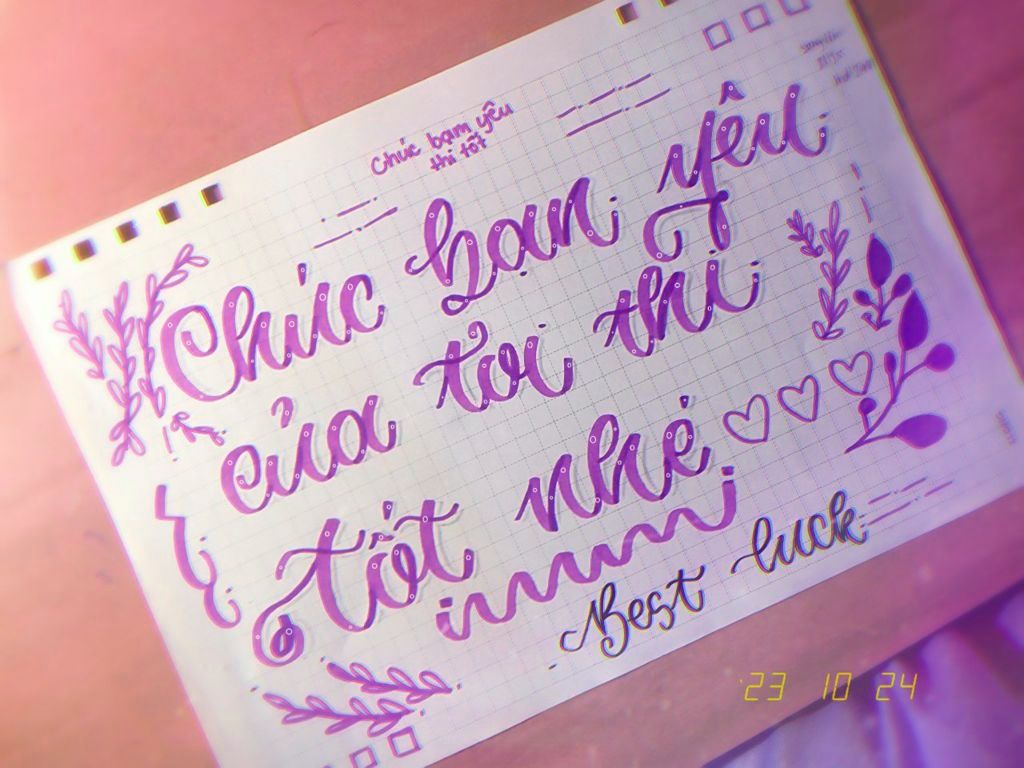 Chúc bạn yêu
thi tốt
Chúc bạn yêu
của tôi thi
tốt nhé
Best luck
'23 10 24